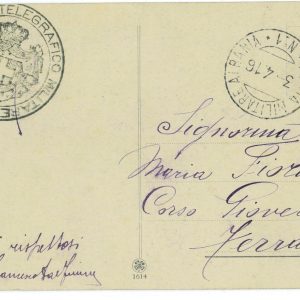 TELEGRAFICO MILITARE
MILITARE ALBANIA
N.1
3.4.16
Signorina
Maria Fior
Corso Giove
Ferra
rispettosi
1614